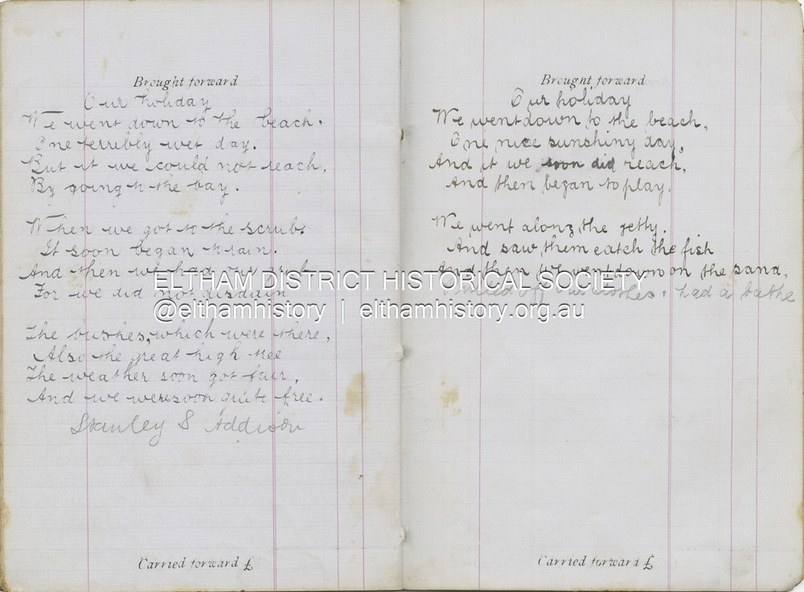 Brought forward
Our holiday
We went down to the beach.
One terribly wet day.
But it we could not reach,
By going to the bay.
When we got to the scrubs
It soon began to rain.
And then we had our
For we did not disdain
The bushes, which were there,
Also the great high tree
The weather soon got fair,
And we were soon quite free.
Stanley S Addison
Carried forward £
Brought forward
Our holiday
We went down to the beach,
One nice sunshiny day,
And it we soon did reach,
And then began to play.
We went along the jetty.
And saw them catch the fish
And then we went down on the sand,
off had a bathe
Carried forward £
ELTHAM DISTRICT HISTORICAL SOCIETY
@elthamhistory | elthamhistory.org.au